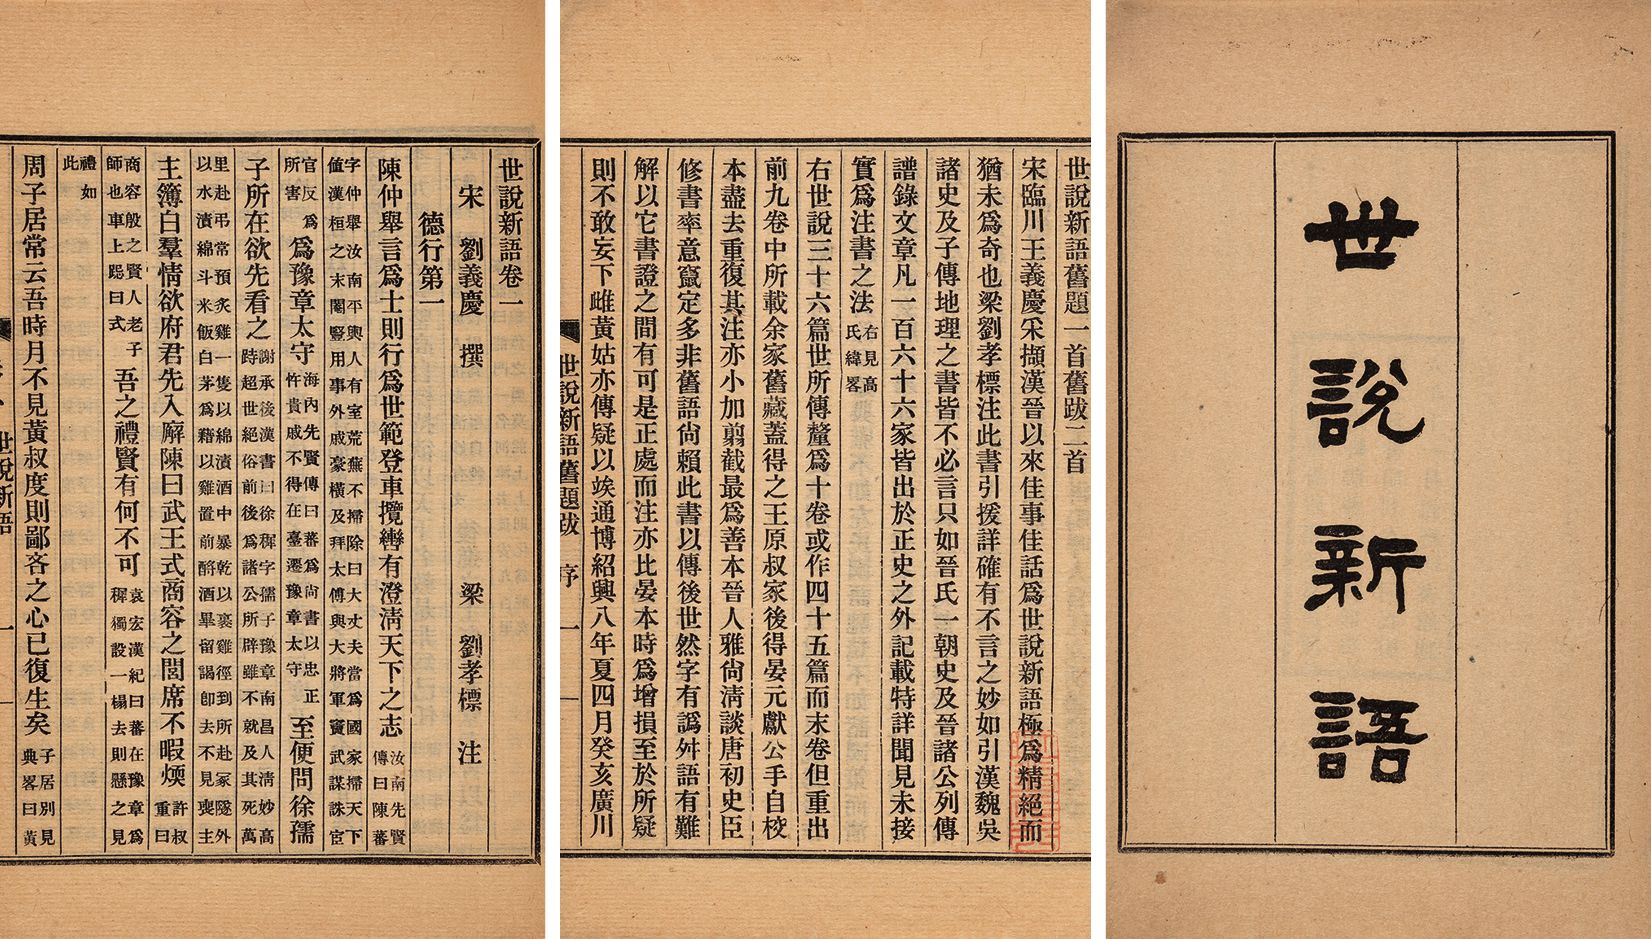 世說新語
世說新語舊題一首舊跋二首
宋臨川王義慶采擷漢晉以來佳事佳話爲世說新語極爲精絕而
猶未爲奇也梁劉孝標注此書引援詳確有不言之妙如引漢魏吳
諸史及子傳地理之書皆不必言只如晉氏一朝史及晉諸公列傳
譜錄文章凡一百六十六家皆出於正史之外記載特詳聞見未接
實爲注書之法右見高氏緯畧
右世說三十六篇世所傳釐爲十卷或作四十五篇而末卷但重出
前九卷中所載余家舊藏蓋得之王原叔家後得晏元獻公手自校
本盡去重復其注亦小加剪截最爲善本晉人雅尙淸談唐初史臣
修書率意竄定多非舊語尙賴此書以傳後世然字有譌舛語有難
解以它書證之間有可是正處而注亦比晏本時爲增損至於所疑
則不敢妄下雌黃姑亦傳疑以竢通博紹興八年夏四月癸亥廣川
世說新語舊題跋 序 一
世說新語卷一
宋 劉義慶 撰 梁 劉孝標 注
德行第一
陳仲舉言爲士則行爲世範登車攬轡有澄淸天下之志汝南先賢傳曰陳蕃
字仲舉汝南平輿人有室荒蕪不掃除曰大丈夫當爲國家掃天下
値漢桓之末閹豎用事外戚豪橫及拜太傅與大將軍竇武謀誅宦
官反爲所害爲豫章太守海內先賢傳曰蕃爲尙書以忠正忤貴戚不得在臺遷豫章太守至便問徐孺
子所在欲先看之謝承後漢書曰徐稺字孺子豫章南昌人淸妙高跱超世絕俗前後爲諸公所辟雖不就及其死萬
里赴弔常預炙雞一隻以綿漬酒中暴乾以裹雞徑到所赴冢隧外
以水漬綿斗米飯白茅爲藉以雞置前酹酒畢留謁卽去不見喪主
主簿白羣情欲府君先入廨陳曰武王式商容之閭席不暇煗許叔重曰
商容殷之賢人老子師也車上跽曰式吾之禮賢有何不可袁宏漢紀曰蕃在豫章爲稺獨設一榻去則懸之見
禮如此
周子居常云吾時月不見黃叔度則鄙吝之心已復生矣子居別見典畧曰黃
世說新語 一